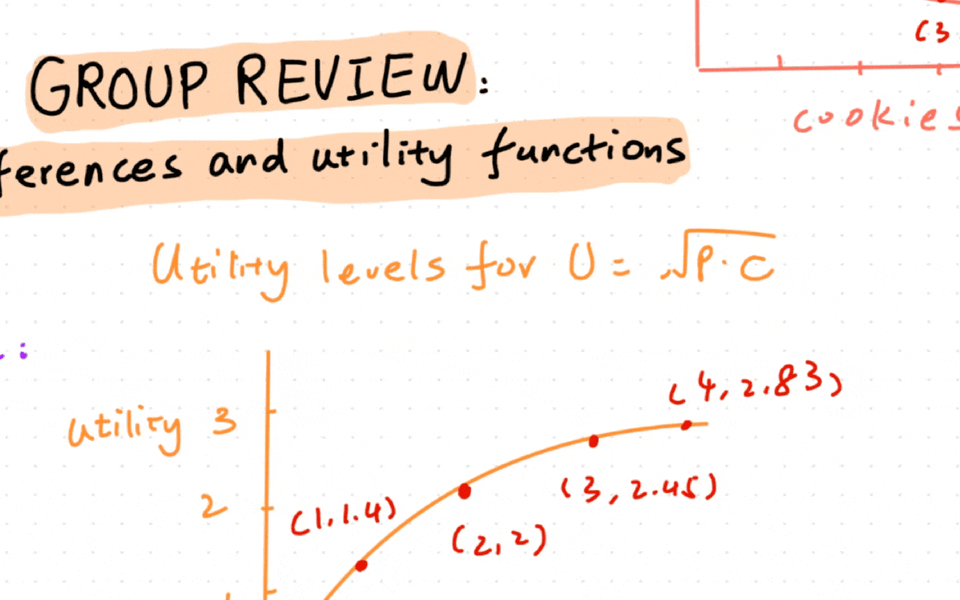 (3
cookies
GROUP REVIEW:
ferences and utility functions
Utility levels for U = √P·C
:
utility 3
(4, 2.83)
2
(1, 1.4)
(3, 2.45)
(2, 2)